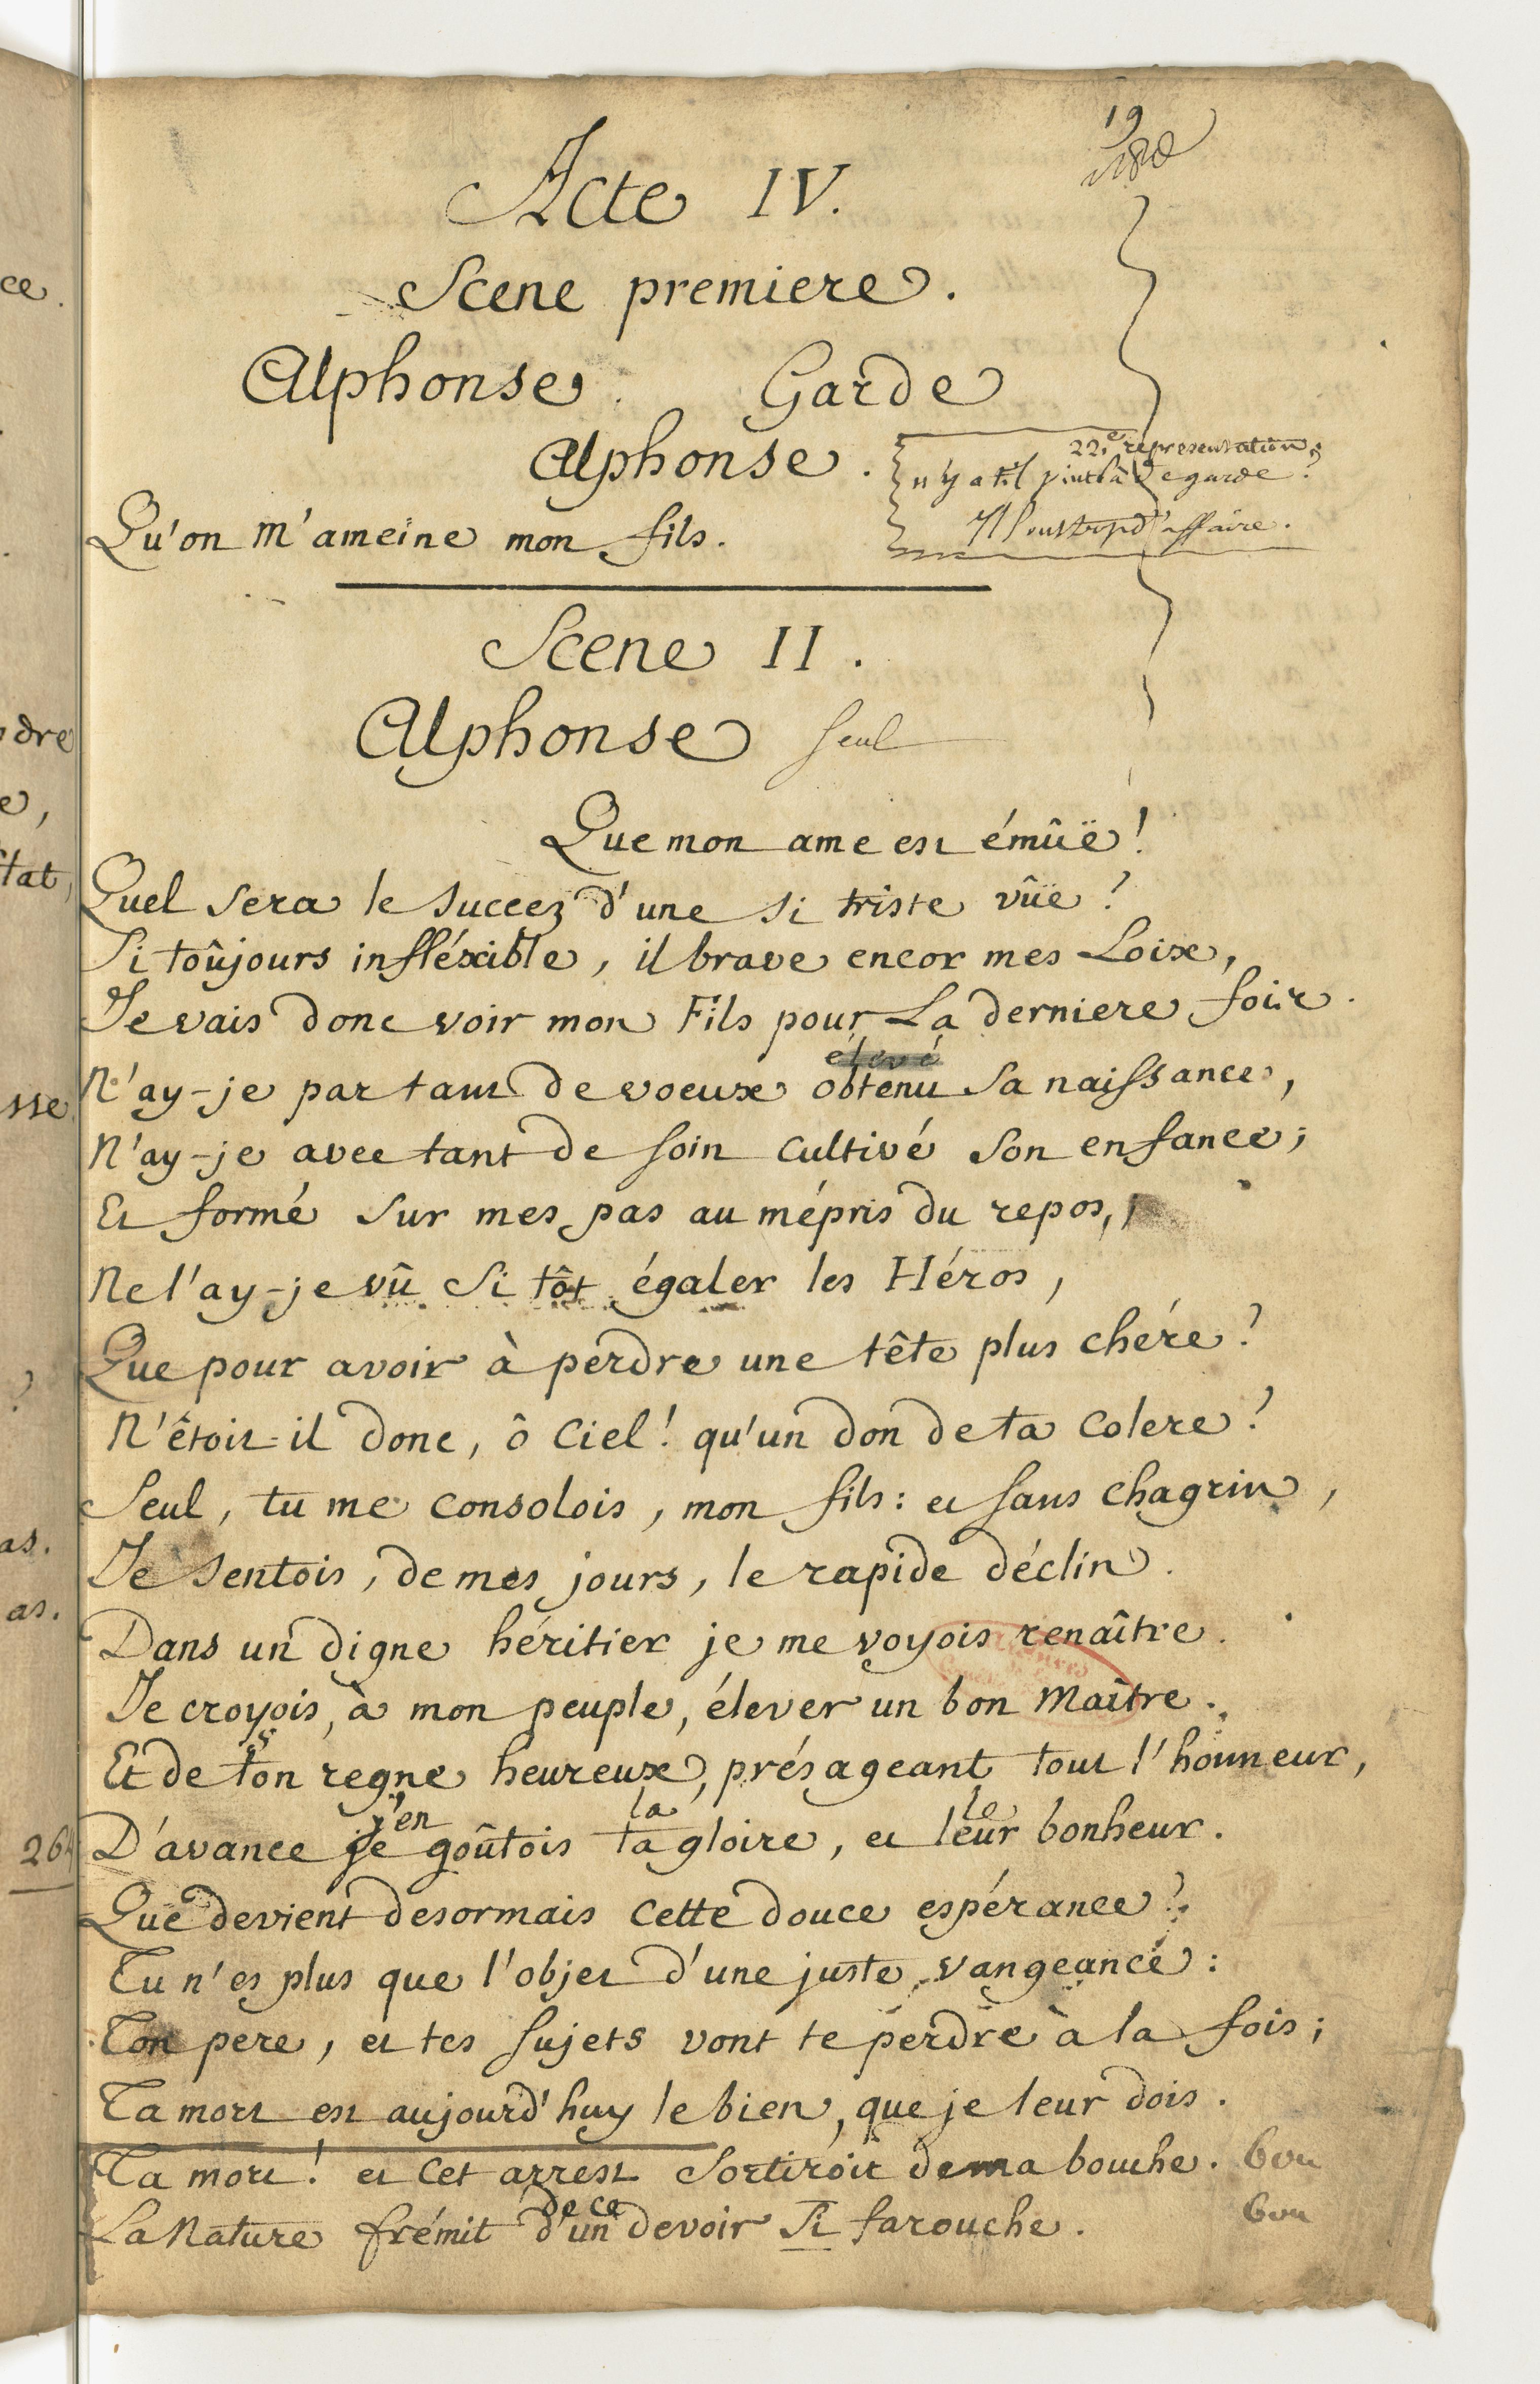 19
Acte IV.
Scene premiere.
Alphonse. Garde
Alphonse.
22.e representation,
n'y a t'il point là de garde?
Ils ont trop d'affaire.
Qu'on m'ameine mon fils.
Scene II.
Alphonse seul
Que mon ame est émûë!
Quel sera le succez d'une si triste vûe?
Si toûjours infléxible, il brave encor mes Loix,
Je vais donc voir mon Fils pour La derniere fois.
élevé
N'ay-je par tant de voeux obtenu sa naissance,
N'ay-je avec tant de soin cultivé son enfance;
Et formé sur mes pas au mépris du repos,
Ne l'ay-je vû si tôt égaler les Héros,
Que pour avoir à perdre une tête plus chére?
N'étoit-il donc, ô Ciel! qu'un don de ta colere?
Seul, tu me consolois, mon fils: et sans chagrin,
Je sentois, de mes jours, le rapide déclin.
Dans un digne héritier je me voyois renaître.
Je croyois, à mon peuple, élever un bon Maître.
s
Et de ton regne heureux, présageant tout l'honneur,
j'en la le
D'avance je goûtois ta gloire, et leur bonheur.
Que devient desormais cette douce espérance?
Tu n'es plus que l'objet d'une juste vangeance:
Ton pere, et tes sujets vont te perdre à la fois;
Ta mort est aujourd'huy le bien, que je leur dois.
Ta mort! et cet arrest sortiroit de ma bouche. bon
de ce
La Nature frémit d'un devoir si farouche. bon
ce.
dre
e,
stat,
sse
?
as.
as.